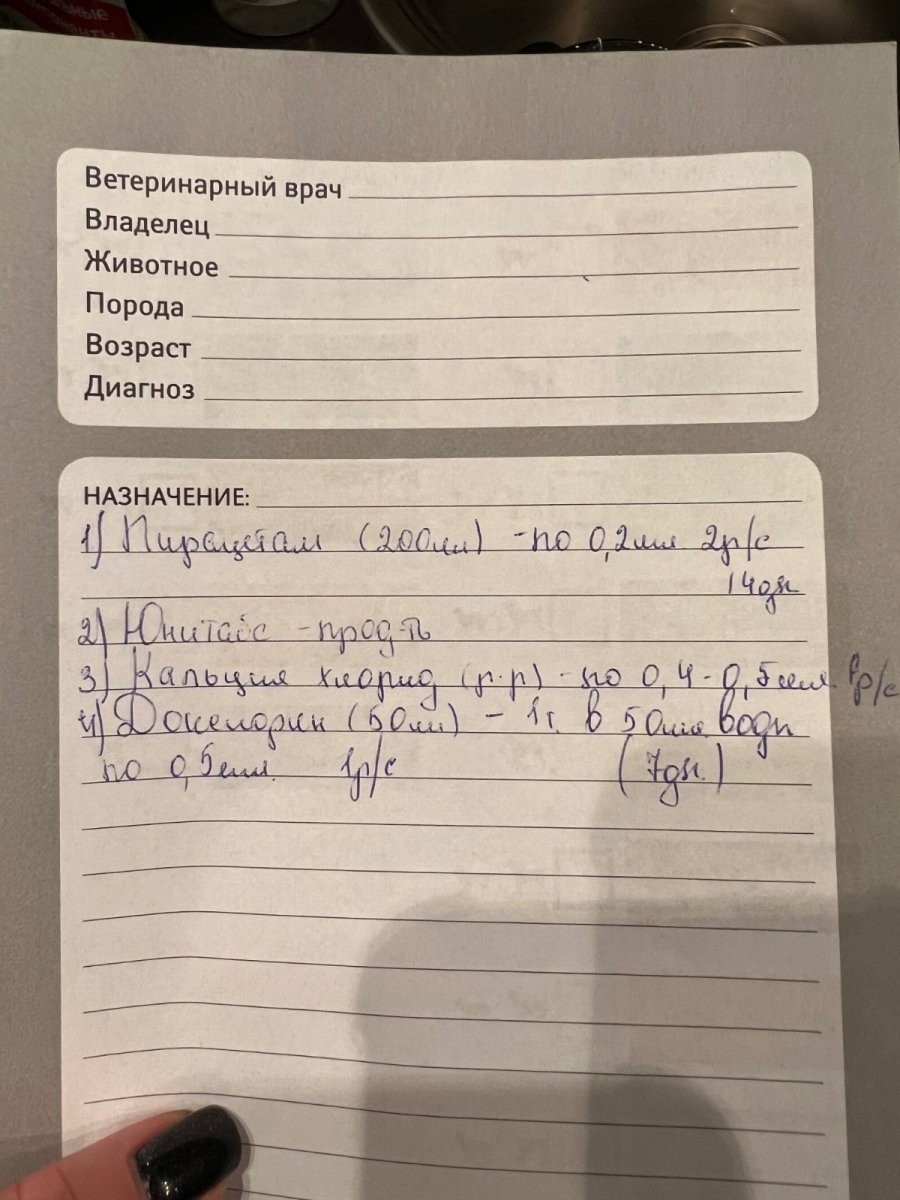 Ветеринарный врач
Владелец
Животное
Порода
Возраст
Диагноз
НАЗНАЧЕНИЕ:
1) Пирацетам (200мл) - по 0,2мл 2р/с
14дн
2) Юнитабс - прод-ть
3) Кальция хлорид (р-р) - по 0,4-0,5мл р/с
4) (50мл) - 1г. в 50мл воды
по 0,5мл. 1р/с (7дн.)